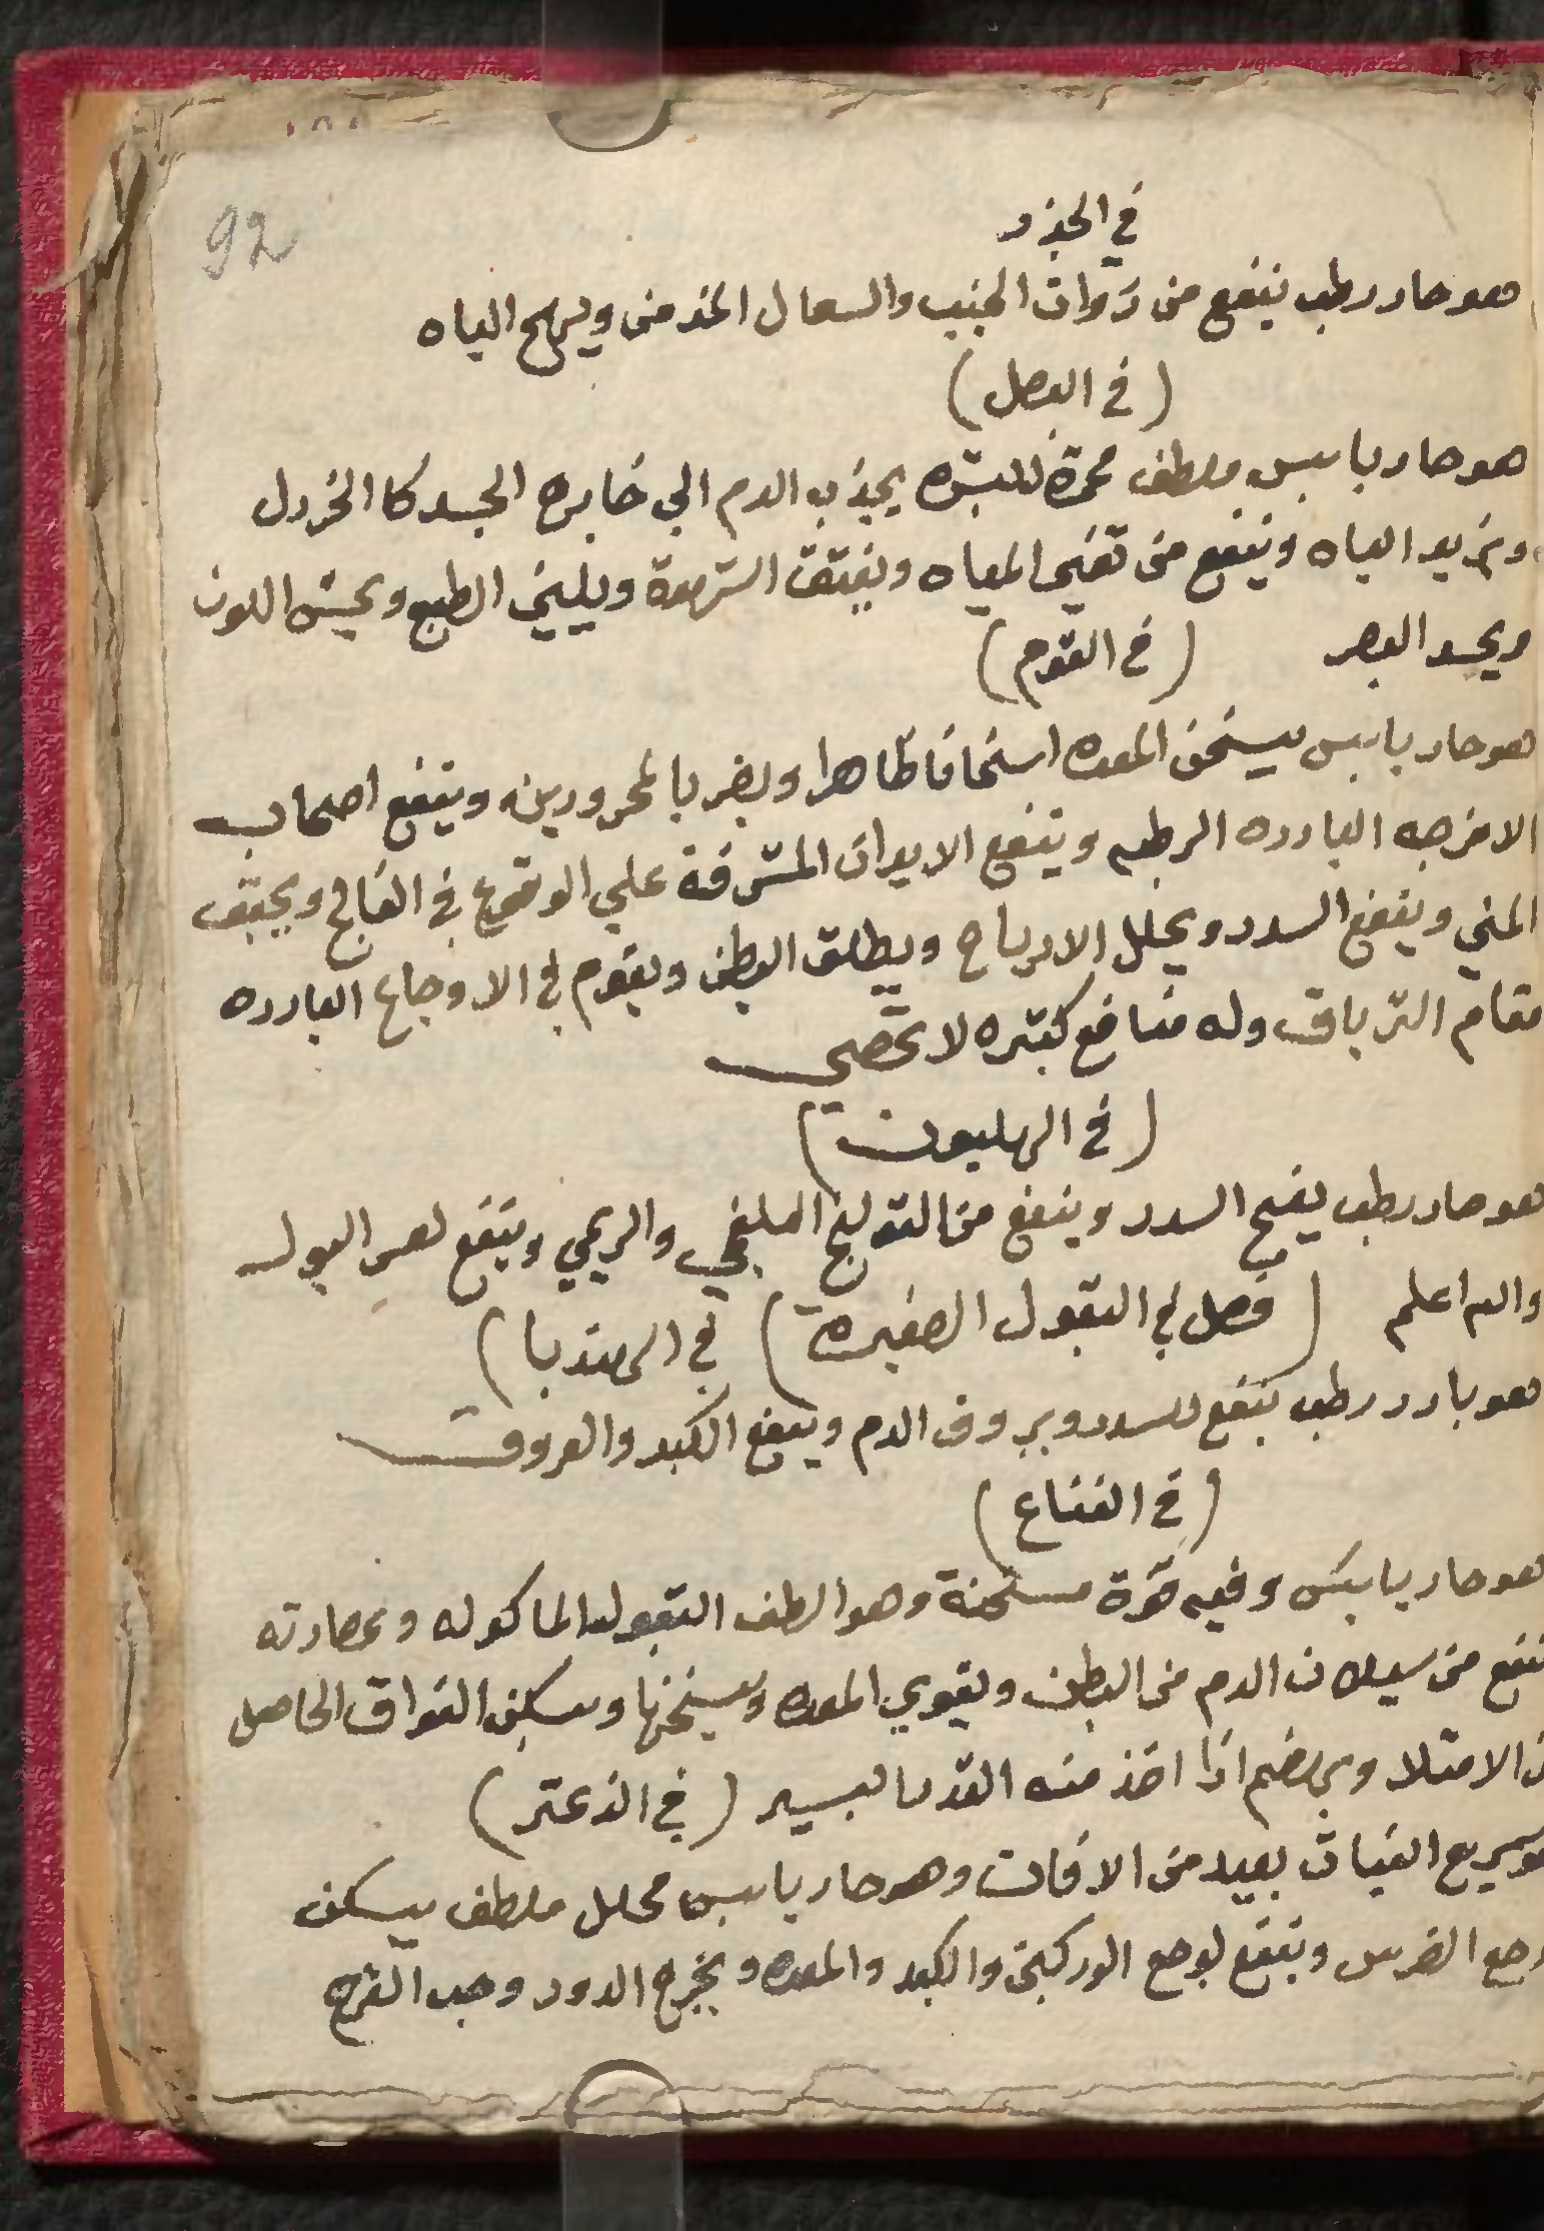 92
في الجزر
هو حار رطب ينفع من ذوات الجنب والسعال المزمن ويهيج الباه
(في البصل)
هو حار يابس ملطف محمرة للبشره يجذب الدم الي خارج الجسد كا الخردل
ويزيد الباه وينفع من تغير المياه ويفتق الشهوة ويلين الطبع ويحسن اللون
ويحد البصر (في الثوم)
هو حار يابس يسخن المعده اسخانا ظاهرا ويضر بالمحرورين وينفع اصحاب
الامزجه البارده الرطبه وينفع الابدان المشرفة علي الوقوع في الفالج ويجفف
المني ويفتح السدد ويحلل الارياح ويطلق البطن ويقوم في الاوجاع البارده
مقام الترياق وله منافع كثيره لا تحصي
(في الهليون)
هو حار رطب يفتح السدد وينفع من القولنج البلغمي والريحي وينفع لعسر البول
والله اعلم (فصل في البقول الصغيره) في الهندبا)
هو بارد رطب ينفع للسدد ويروق الدم وينفع الكبد والعروق
(في النعناع)
هو حار يابس وفيه قوة مسخنة وهو الطف البقول الماكوله وعصارته
تنفع من سيلان الدم من البطن ويقوي المعده ويسخنها ويسكن الفواق الحاصل
من الامتلا ويهضم اذا اخذ منه القدر اليسير (في الزعتر)
هو سريع النبات بعيد من الافات وهو حار يابس محلل ملطف يسكن
وجع الضرس وينفع لوجع الوركين والكبد والمعده ويخرج الدود وحب القرع